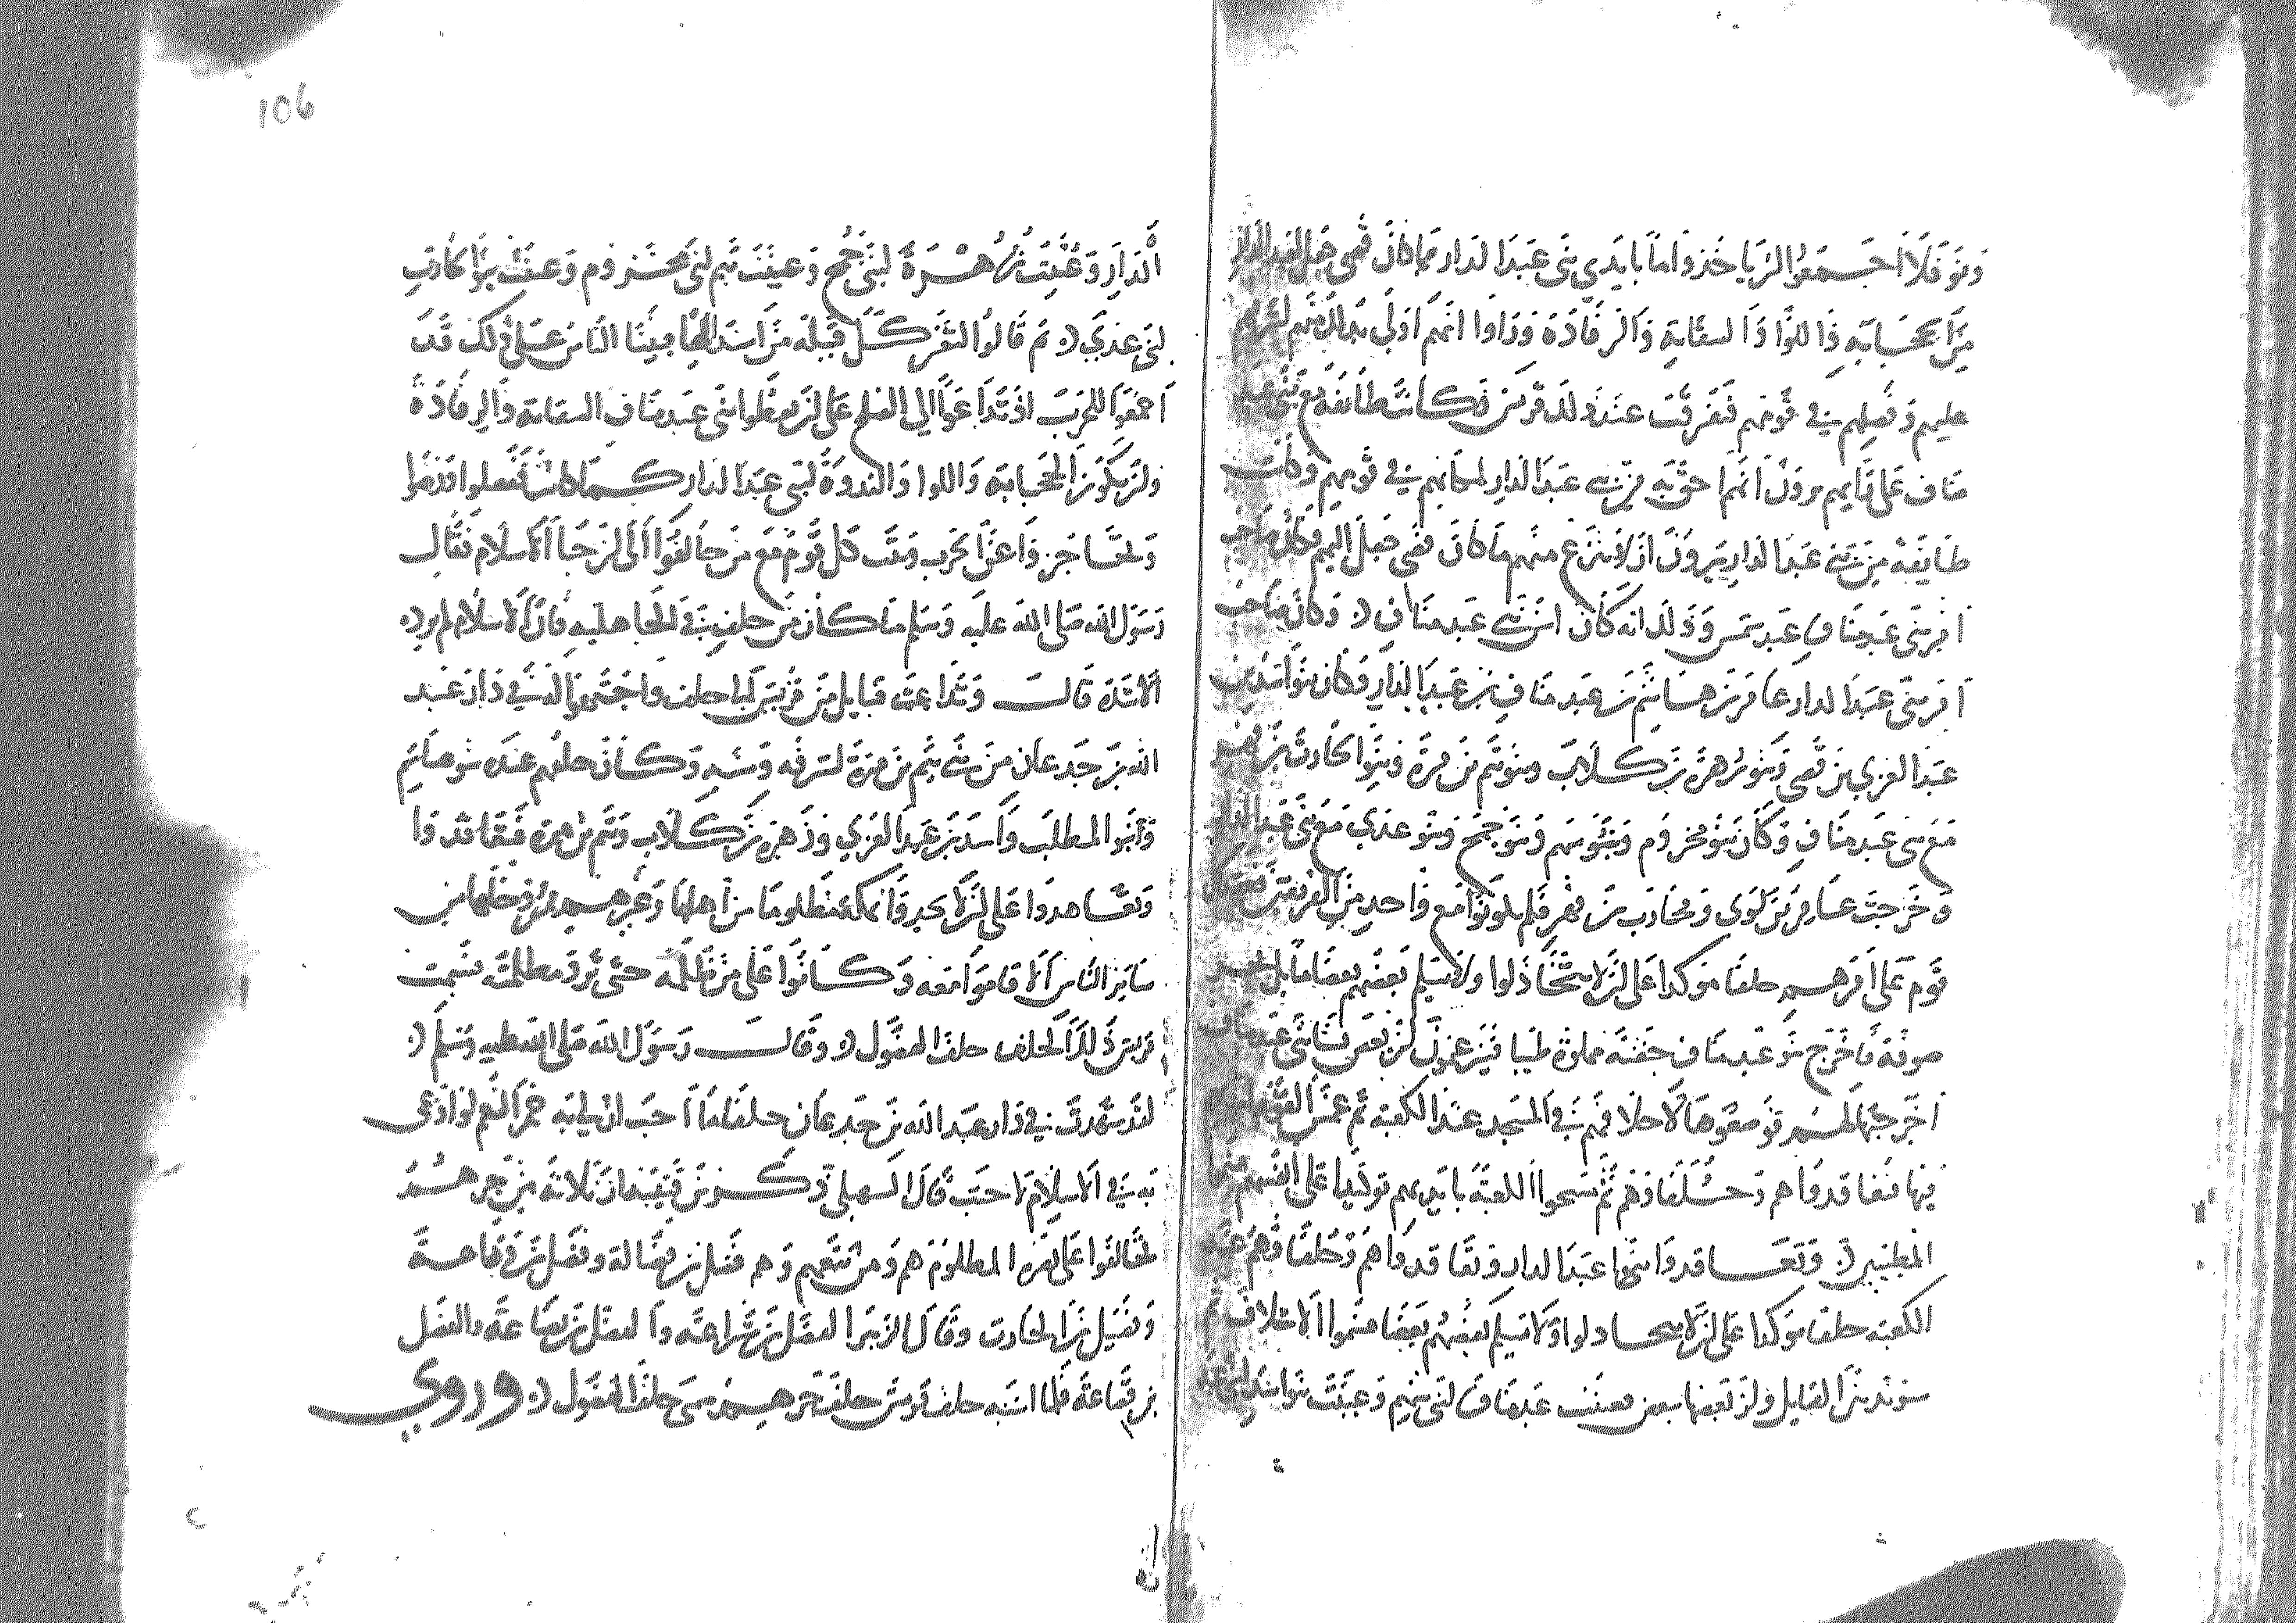 ونوفلا اجمعوا ان ياخذوا ما بايدي بني عبد الدار مما كان قصي جعل الي عبد الدار
من الحجابة واللوا والسقاية والرفادة وراوا انهم اولي بذلك منهم لشرفهم
عليهم وفضلهم في قومهم فتفرقت عند ذلك قريش فكانت طايفة مع بني عبد
مناف على رايهم يرون انهم احق به من بني عبد الدار لمكانهم في قومهم وكانت
طايفة مع بني عبد الدار يرون ان لا ينزع منهم ما كان قصي جعل اليهم فكان صاحب
امر بني عبد مناف عبد شمس وذلك انه كان اسن بني عبد مناف وكان صاحب
امر بني عبد الدار عامر بن هاشم بن عبد مناف بن عبد الدار وكان بنو اسد بن
عبد العزي بن قصي وبنو زهرة بن كلاب وبنو تيم بن مرة وبنو الحارث بن فهر
مع بني عبد مناف وكان بنو مخزوم وبنو سهم وبنو جمح وبنو عدي مع بني عبد الدار
وخرجت عامر بن لوي ومحارب بن فهر فلم يكونوا مع واحد من الفريقين فعقد كل
قوم على امرهم حلفا موكدا على ان لا يتخاذلوا ولا يسلم بعضهم بعضا ما بل بحر
صوفة فاخرج بنو عبد مناف جفنة مملوة طيبا فيزعمون ان بعض نسا بني عبد مناف
اخرجتها لهم فوضعوها لاحلافهم في المسجد عند الكعبة ثم غمس القوم ايديهم
فيها فتعاقدوا هم وحلفاوهم ثم مسحوا الكعبة بايديهم توكيدا على انفسهم فسموا
المطيبين وتعاقدوا بنوا عبد الدار وتعاقدوا هم وحلفاوهم عند
الكعبة حلفا موكدا على ان لا يتخادلوا ولا يسلم بعضهم بعضا فسموا الاحلاف ثم
سوند بين القبايل ولز بعضها ببعض فعبيت عبد مناف لبني سهم وعبيت بنوا اسد لبني عبد
106
الدار وعبيت زهرة لبني جمح وعبيت تيم لبني مخزوم وعبيت بنوا الحارث
لبني عدي ثم قالوا لتغز كل قبيلة من اسند اليها فبينا الناس على ذلك قد
اجمعوا للحرب اذ تداعوا الي الصلح على ان يعطوا بني عبد مناف السقاية والرفادة
وان تكون الحجابة واللوا والندوة لبني عبد الدار كما كانت ففعلوا ورضوا
وتحاجز واعن الحرب وثبت كل قوم مع من حالفوا الى ان جا الاسلام فقال
رسول الله صلى الله عليه وسلم ما كان من حلف في الجاهلية فان الاسلام لم يزده
الا شدة قال وتداعت قبايل من قريش الي حلف واجتمعوا له في دار عبد
الله بن جدعان من بني تيم بن مرة لشرفه وسنه وكان حلفهم عنده بنو هاشم
وبنوا المطلب واسد بن عبد العزي وزهرة بن كلاب وتيم بن مرة فتعاقدوا
وتعاهدوا على ان لا يجدوا بمكة مظلوما من اهلها وغيرهم ممن دخلها من
ساير الناس الا قاموا معه وكانوا على من ظلمه حتى ترد مظلمته فسمت
قريش ذلك الحلف حلف الفضول وقال رسول الله صلى الله عليه وسلم
لقد شهدت في دار عبد الله بن جدعان حلفا ما احب ان لي به حمر النعم لو ادعى
به في الاسلام لاجبت قال السهيلي ذكر بن قتيبة ان ثلاثة من جرهم
تحالفوا على نصرة المظلوم هم ومن تبعهم وهم فضل بن فضالة وفضل بن وداعة
وفضيل بن الحارث وقال الزبير الفضل بن شراعة والفضل بن بضاعة والفضل
بن قضاعة فلما اشبه حلف قريش حلف جرهم سمى حلف الفضول وروي